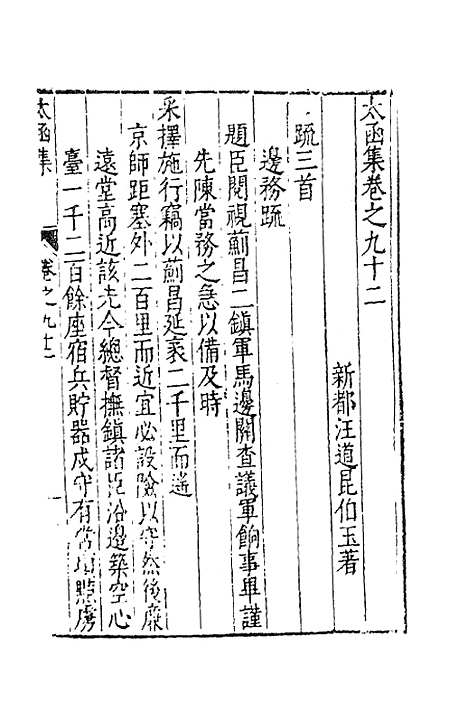 太函集卷之九十二
新都汪道昆伯玉著
疏三首
邊務疏
題臣閱視薊昌二鎮軍馬邊關查議軍餉事畢謹
先陳當務之急以備及時
采擇施行竊以薊昌延袤二千里而遙
京師距塞外二百里而近宜必設險以守然後廉
遠堂高近該先今總督撫鎮諸臣沿邊築空心
臺一千二百餘座宿兵貯器戍守有常 虜
太函集
卷之九十二
一